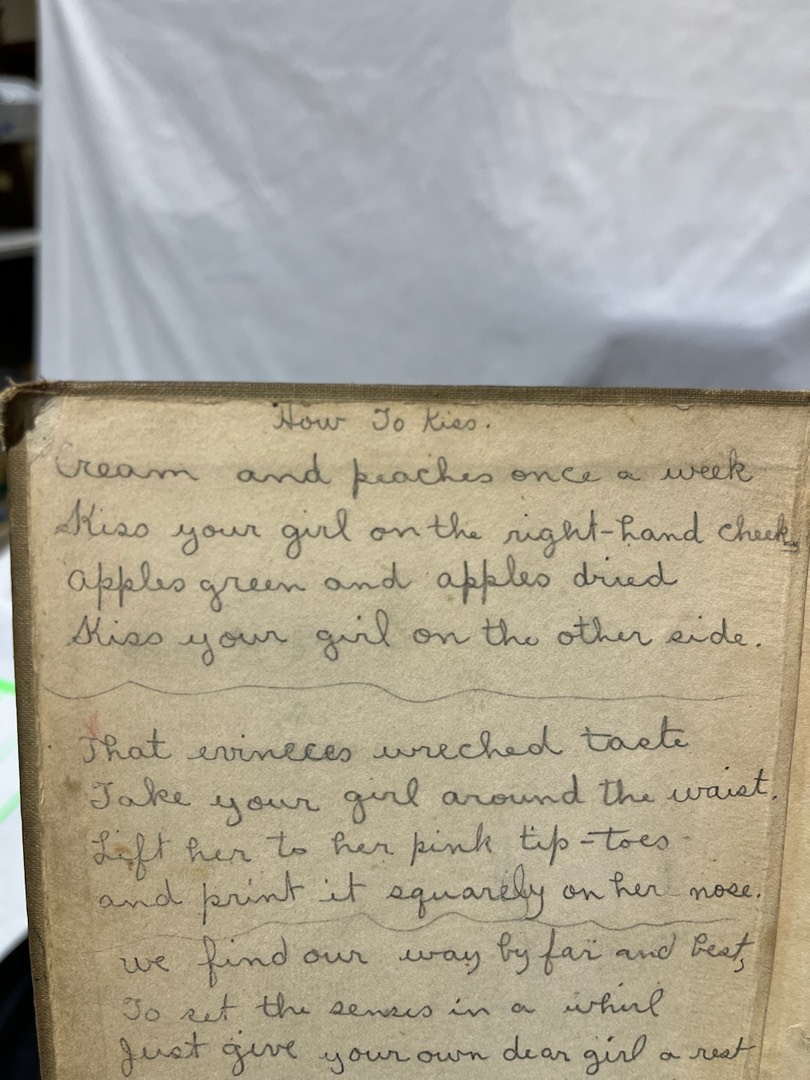 How To Kiss.
Cream and peaches once a week
Kiss your girl on the right-hand cheek,
apples green and apples dried
Kiss your girl on the other side.
That evineces wreched taste
Take your girl around the waist.
Lift her to her pink tip-toes
and print it squarely on her nose.
we find our way by far and best,
To set the senses in a whirl
Just give your own dear girl a rest